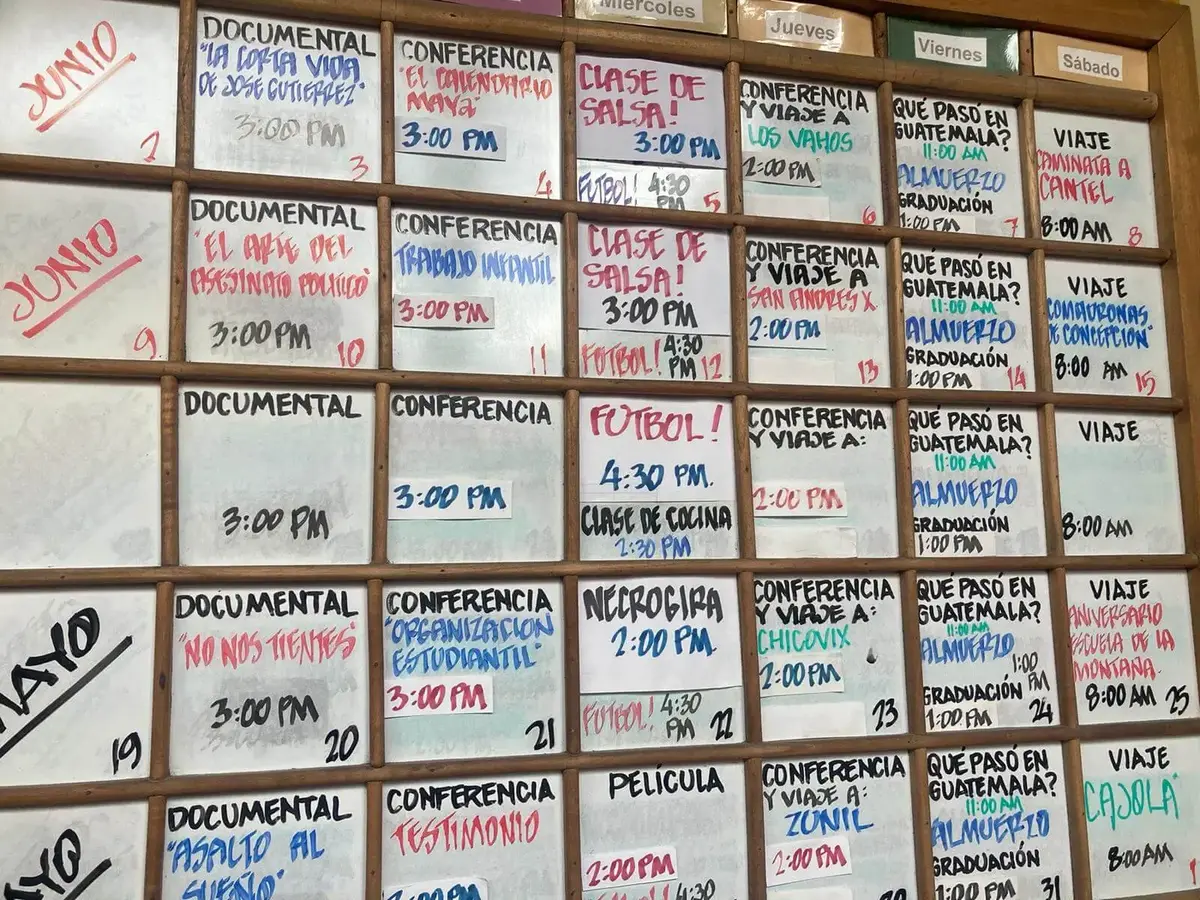 Miércoles
Jueves
Viernes
Sábado
JUNIO
2
DOCUMENTAL
"LA CORTA VIDA
DE JOSÉ GUTIERREZ"
3:00 PM
3
CONFERENCIA
"EL CALENDARIO
MAYA"
3:00 PM
4
CLASE DE
SALSA!
3:00 PM
FUTBOL! 4:30
PM
5
CONFERENCIA
Y VIAJE A
LOS VAHOS
2:00 PM
6
QUÉ PASÓ EN
GUATEMALA?
11:00 AM
ALMUERZO
GRADUACIÓN
1:00 PM
7
VIAJE
CAMINATA A
CANTEL
8:00 AM
8
JUNIO
9
DOCUMENTAL
"EL ARTE DEL
ASESINATO POLITICO"
3:00 PM
10
CONFERENCIA
TRABAJO INFANTIL
3:00 PM
11
CLASE DE
SALSA!
3:00 PM
FUTBOL! 4:30
PM
12
CONFERENCIA
Y VIAJE A
SAN ANDRES X
2:00 PM
13
QUÉ PASÓ EN
GUATEMALA?
11:00 AM
ALMUERZO
GRADUACIÓN
1:00 PM
14
VIAJE
DE CONCEPCIÓN"
8:00 AM
15
DOCUMENTAL
3:00 PM
CONFERENCIA
3:00 PM
FUTBOL!
4:30 PM.
CLASE DE COCINA
2:30 PM
CONFERENCIA
Y VIAJE A:
2:00 PM
QUÉ PASÓ EN
GUATEMALA?
11:00 AM
ALMUERZO
GRADUACIÓN
1:00 PM
VIAJE
8:00 AM
MAYO
19
DOCUMENTAL
"NO NOS TIENTES"
3:00 PM
20
CONFERENCIA
"ORGANIZACION
ESTUDIANTIL"
3:00 PM
21
NECROGIRA
2:00 PM.
FUTBOL! 4:30
PM
22
CONFERENCIA
Y VIAJE A:
CHICOVIX
2:00 PM
23
QUÉ PASÓ EN
GUATEMALA?
11:00 AM
ALMUERZO
1:00
PM
GRADUACIÓN
1:00 PM
24
VIAJE
ANIVERSARIO
ESCUELA DE LA
MONTAÑA.
8:00 AM
25
MAYO
DOCUMENTAL
"ASALTO AL
SUEÑO"
CONFERENCIA
TESTIMONIO
3:00 PM
PELÍCULA
2:00 PM
4:30
CONFERENCIA
Y VIAJE A:
ZUNIL
2:00 PM
30
QUÉ PASÓ EN
GUATEMALA?
11:00 AM
ALMUERZO
GRADUACIÓN
1:00 PM
31
VIAJE
CAJOLA"
8:00 AM
1